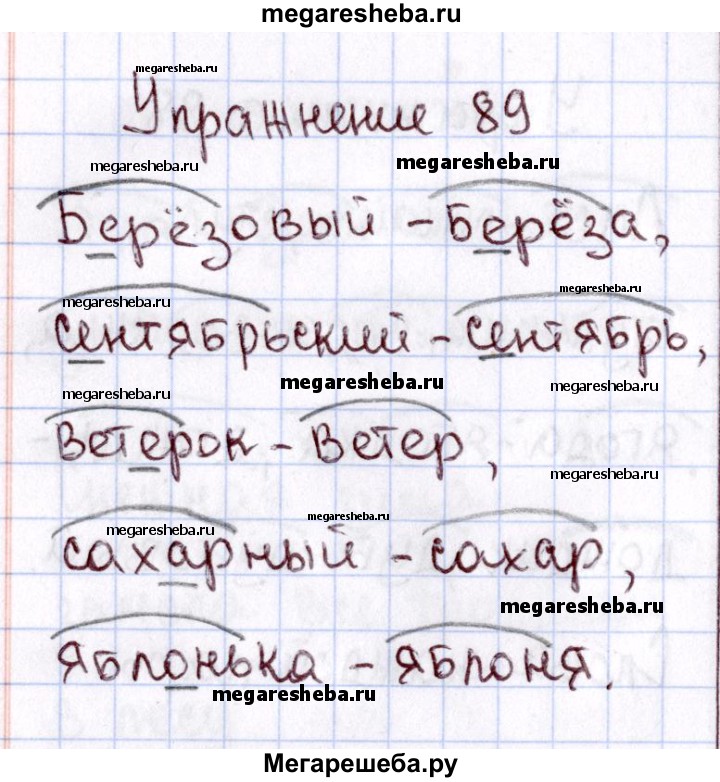 megaresheba.ru
megaresheba.ru
Упражнение 89
megaresheba.ru megaresheba.ru
Берёзовый - берёза,
megaresheba.ru megaresheba.ru
сентябрьский - сентябрь,
megaresheba.ru megaresheba.ru
megaresheba.ru
ветерок - ветер,
megaresheba.ru
megaresheba.ru megaresheba.ru
сахарный - сахар,
megaresheba.ru
яблонька - яблоня.
megaresheba.ru
Мегарешеба.ру